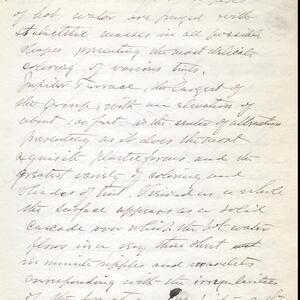 of hot water are fringed with
stalactitic masses in all possible
shapes presenting the most delicate
coloring of various tints.
Jupiter Terrace, the largest of
the group, with an elevation of
about feet is the center of attraction
presenting as it does the most
exquisite plastic forms, and the
greatest variety of coloring and
shades of tint. Viewed as a whole
the surface appears as a solid
cascade over which the hot water
flows in a very thin sheet
in minute ripples and wavelets
corresponding with the irregularities
of the